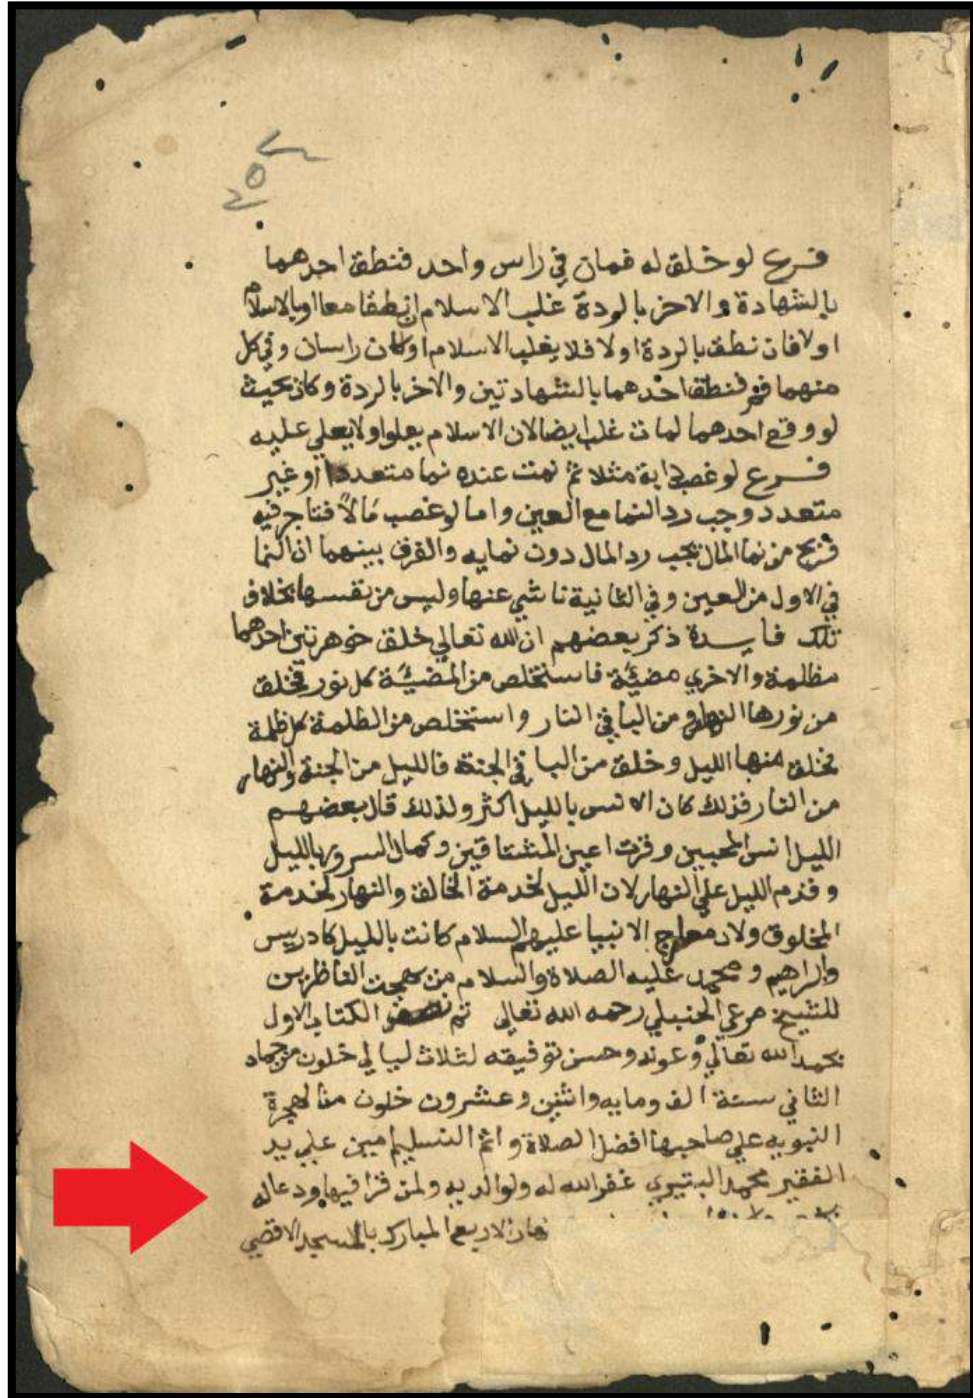 فرع لو خلق له فمان في راس واحد فنطق احدهما
بالشهادة والاخر بالردة غلب الاسلام ان نطقا معا او بالاسلام
اولا فان نطق بالردة اولا فلا يغلب الاسلام او كان راسان وفي كل
منهما فم فنطق احدهما بالشهادتين والاخر بالردة وكان بحيث
لو وقع احدهما لمات غلب ايضا لان الاسلام يعلوا ولا يعلي عليه
فرع لو غصب داية مثلا ثم نمت عنده نما متعددا او غير
متعدد وجب رد النما مع العين واما لو غصب مالاً فتاجر فيه
فربح من نما المال يجب رد المال دون نمايه والفرق بينهما ان النما
في الاول من العين وفي الثانية ناشي عنها وليس من نفسها بخلاف
تلك فايدة ذكر بعضهم ان الله تعالي خلق جوهرتين احدهما
مظلمة والاخري مضيئة فاستخلص من المضيئة كل نور فخلق
من نورها النهار ومن الباقي النار واستخلص من الظلمة كل ظلمة
فخلق منها الليل وخلق من الباقي الجنة فالليل من الجنة والنهار
من النار فلذلك كان الانس بالليل اكثر ولذلك قال بعضهم
الليل انس المحبين وقرت اعين المشتاقين وكمال السرور بالليل
وقدم الليل علي النهار لان الليل لخدمة الخالق والنهار لخدمة
المخلوق ولان معارج الانبيا عليهم السلام كانت بالليل كادريس
وابراهيم ومحمد عليه الصلاة والسلام من بهجت الناظرين
للشيخ مرعي الحنبلي رحمه الله تعالي تم نصف الكتاب الاول
بحمد الله تعالي وعونه وحسن توفيقه لثلاث ليالي خلون من جماد
الثاني سنة الف ومايه واثنين وعشرون خلون من الهجرة
النبويه علي صاحبها افضل الصلاة واتم التسليم امين علي يد
الفقير محمد البتيري غفر الله له ولوالديه ولمن قرا فيها ودعا له
نهار الاربع المبارك بالمسجد الاقصي